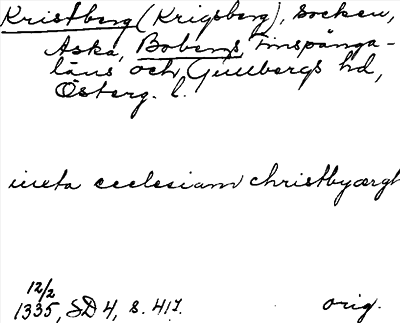 Kristberg (Krigsberg), socken,
Aska, Bobergs, Finspånga-
läns och Gullbergs hd,
Österg. l.
iuxta ecclesiam christbyærgh
12/2
1335, SD 4, s. 417.
orig.